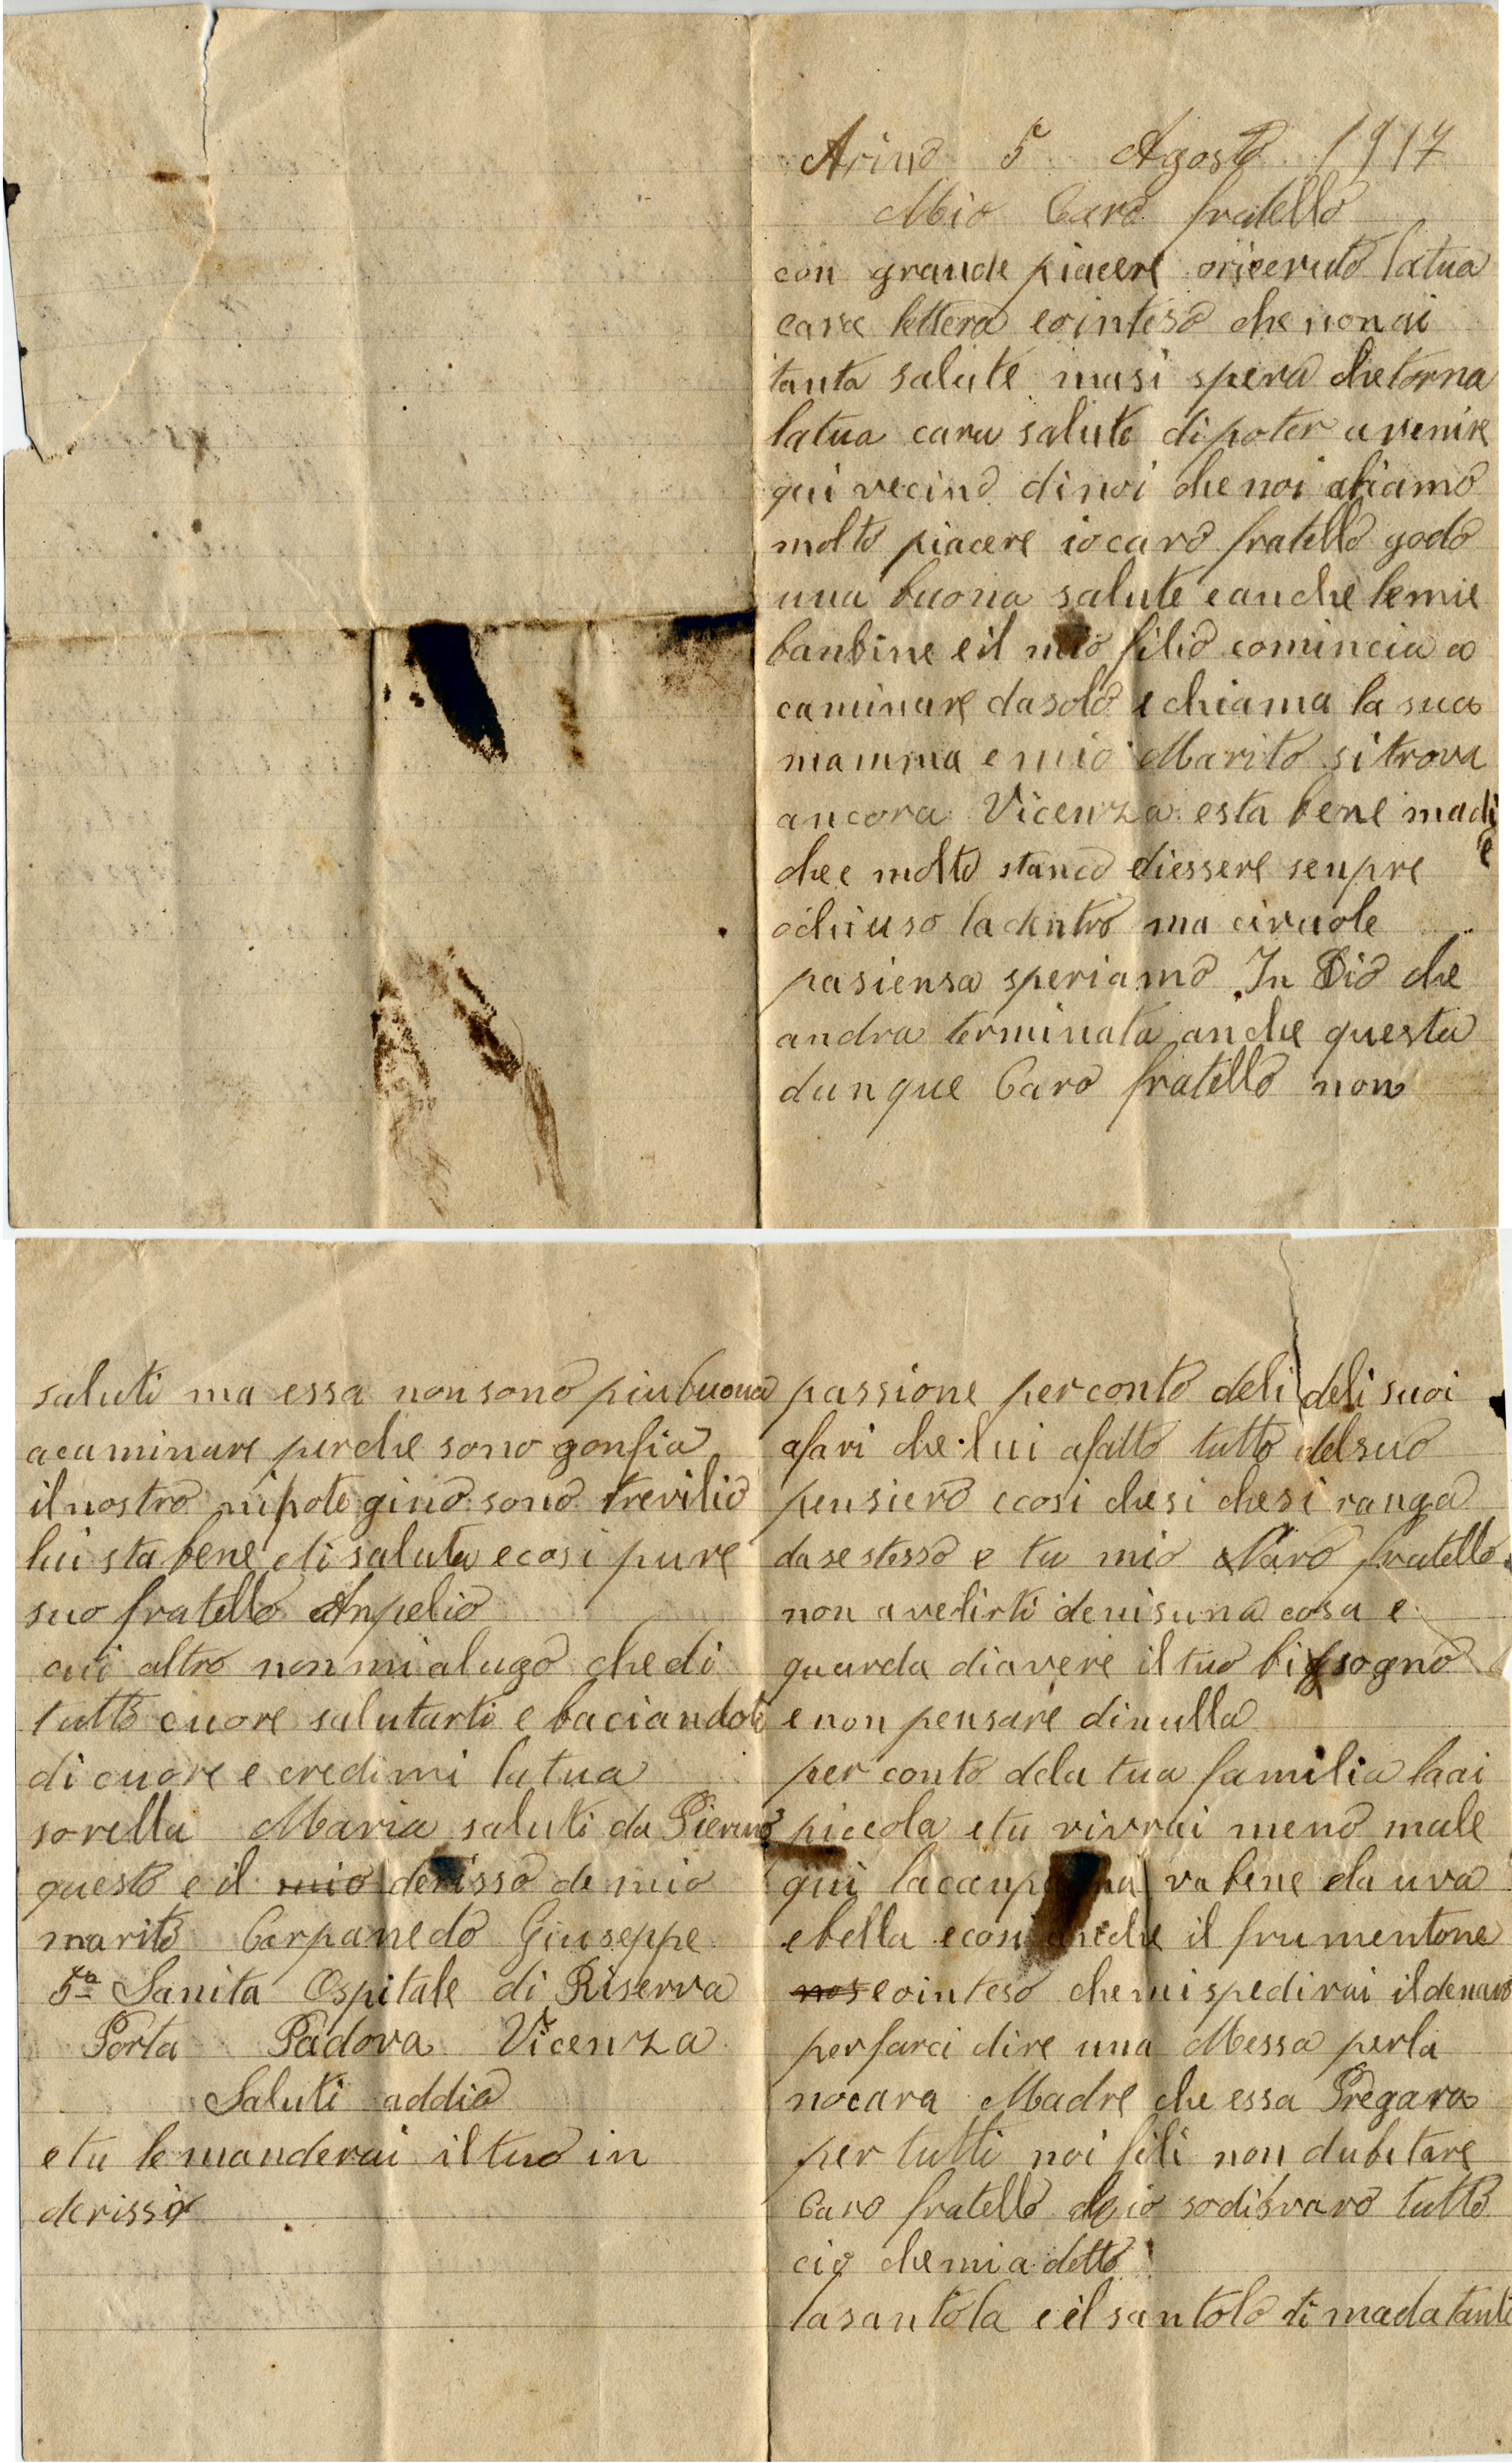 Arino 5 Agosto 1917
Mio Caro fratello
con grande piacere oriceruto latua
cara lettera eointeso che nonai
tanta salute masi spera chetorna
latua cara salute dipoter avenire
qui vecino dinoi che noi abiamo
molto piacere iocaro fratello godo
una buona salute eanche lemie
banbine eil mio filio comincia a
caminare dasolo e chiama la sua
mamma e mio Marito sitrova
ancora Vicenza esta bene madi
e
chee molto stanco diessere senpre
ochiuso ladentro ma civuole
pasiensa speriamo In Dio che
andra terminata anche questa
dunque Caro fratello non
passione perconto deli deli suoi
afari che lui afatto tutto delsuo
pensiero ecosi chesi chesi ranga
dasestesso e tu mio Caro fratello
non avelirti denisuna cosa e
guarda diavere il tuo bisogno
e non pensare dinulla
per conto dela tua familia laai
piccola etu vivrai meno male
qui lacanpa va bene da uva
ebella ecosi anche il frumentone
nos eointeso chemispedirai ildenaro
perfarci dire una Messa perla
nocara Madre che essa Pregara
per tutti noi fili non dubitare
Caro fratello che io sodisvaro tutto
cio chemia detto
lasantola eil santolo timada tanti
saluti ma essa nonsono piubuona
acaminare perche sono gonfia
ilnostro nipote gino sono trevilio
lui stabene ti saluta ecosi pure
suo fratello Anpelio
cui altro nonmialugo chedi
tutto cuore salutarti e baciandoti
di cuore e credimi latua
sorella Maria saluti da Pierino
questo e il mio derisso de mio
marito Carpanedo Giuseppe
5a Sanita Ospitale di Riserva
Porta Padova Vicenza
Saluti addio
etu lemanderai iltuo in
derisso